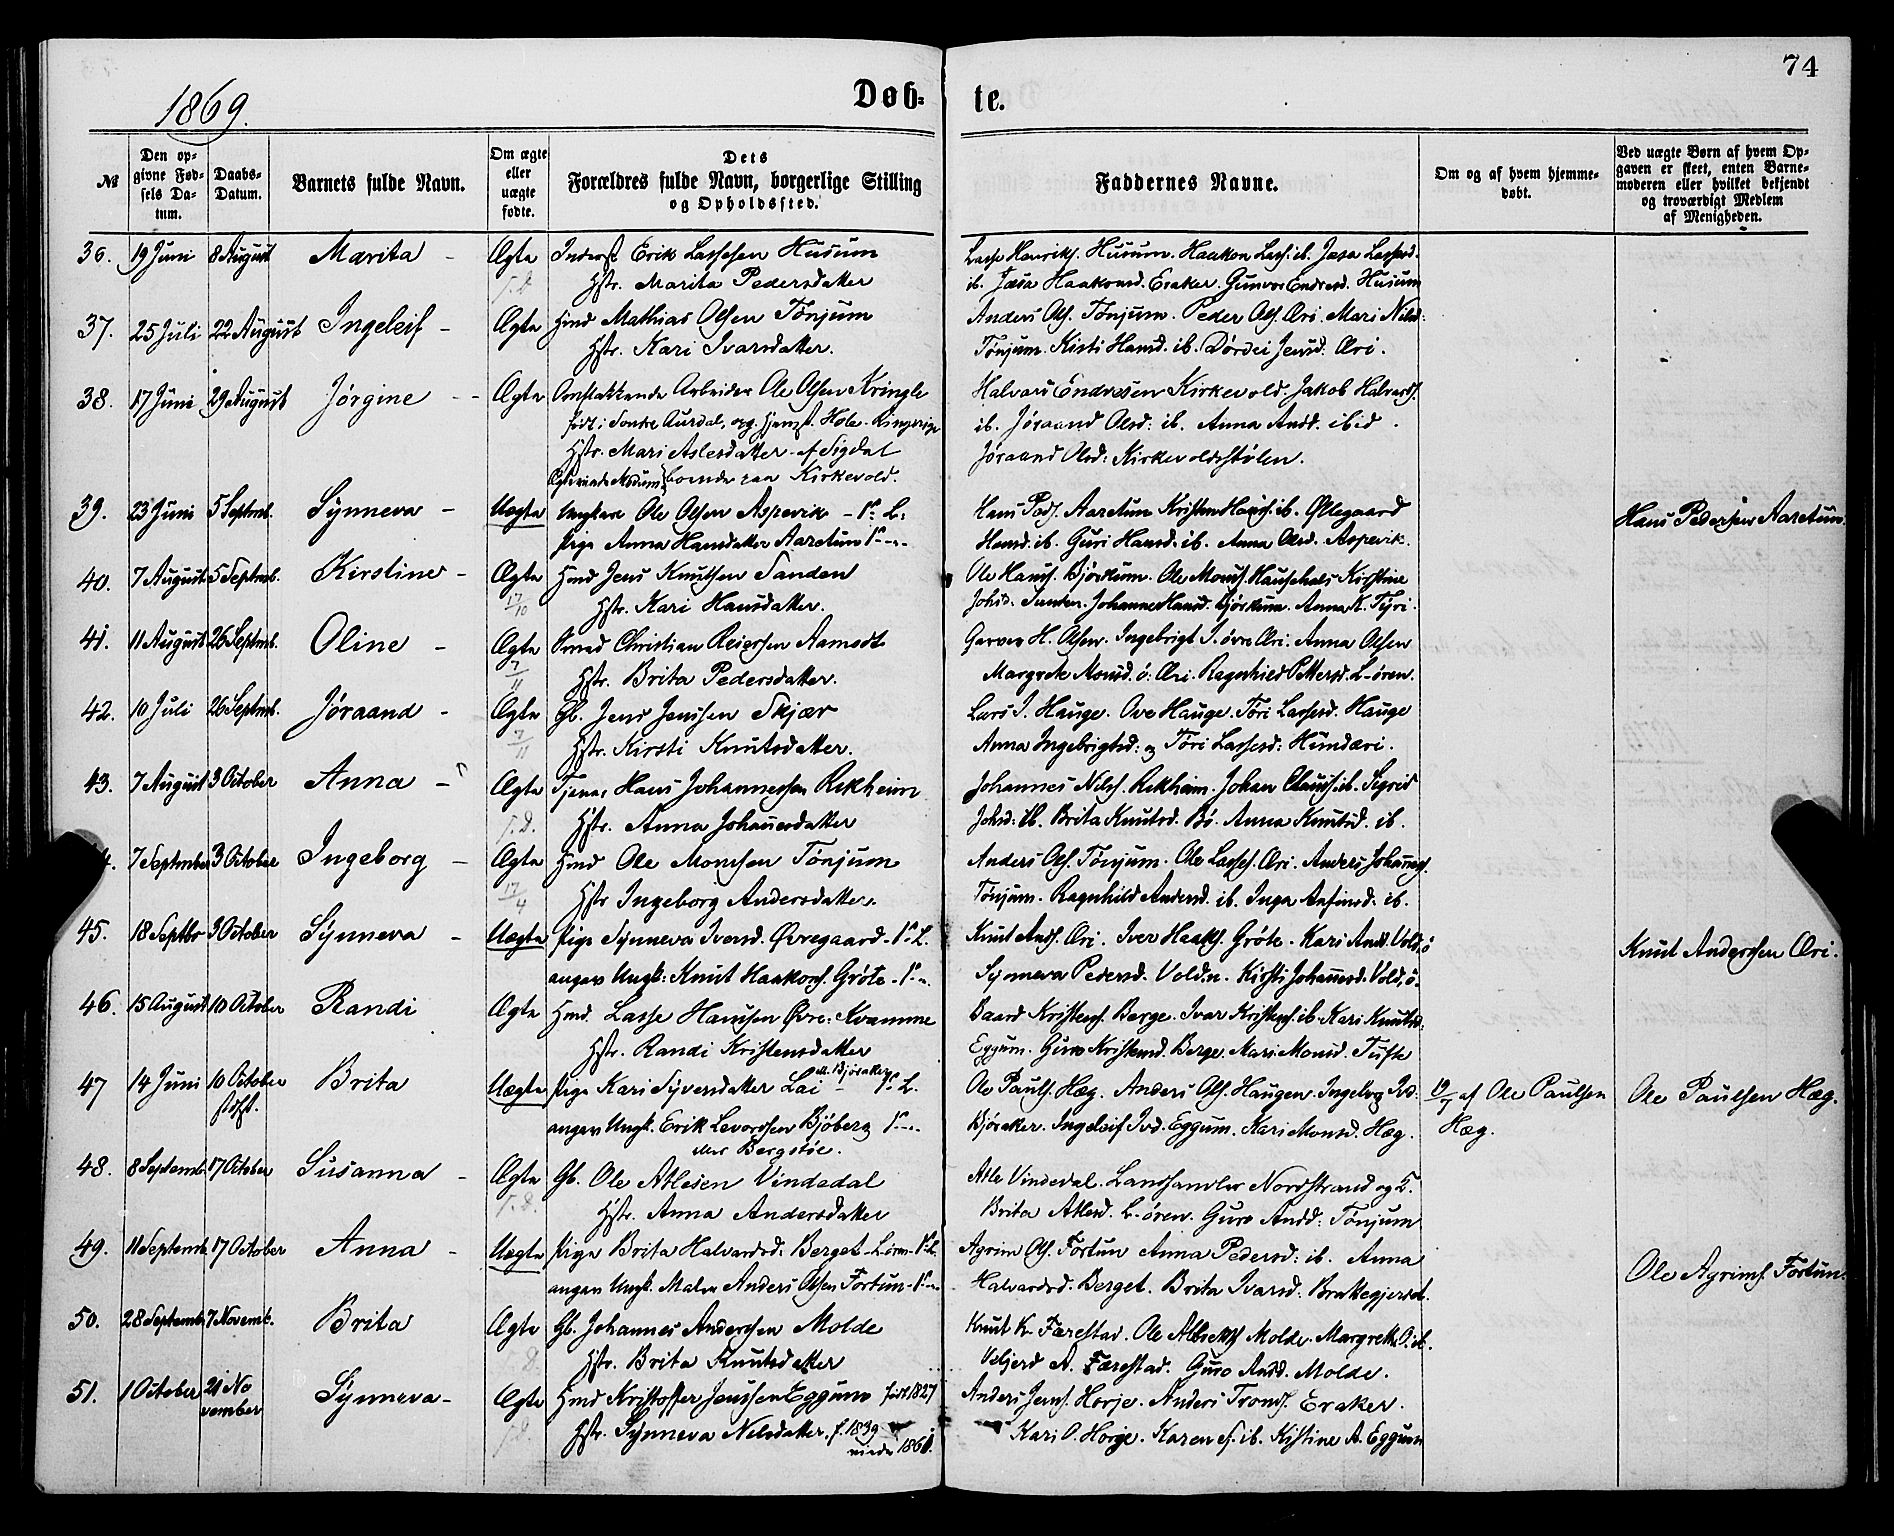 74
1869.
Døb-
te.
№
Den opgivne Fødsels Datum.
Daabs-Datum.
Barnets fulde Navn.
Om ægte eller uægte fødte.
Dets Forældres fulde Navn, borgerlige Stilling og Opholdssted.
Faddernes Navne.
Om og af hvem hjemmedøbt.
Ved uægte Børn af hvem Opgaven er skeet, enten Barnemoderen eller hvilket bekjendt og troværdigt Medlem af Menigheden.
36. 19 Juni 8 August Marita - Ægte Inderst Erik Lassesen Husum
Hstr. Marita Pedersdatter
Lasse Henriks. Husum. Haakon Lass. ib. Jæsa Lassesd.
ib. Jæsa Haakonsd. Eraker. Gunvor Endresd. Husum
37. 25 Juli 22 August Ingeleif - Ægte Hmd Mathias Olsen Tønjum
Hstr. Kari Ivarsdatter.
Anders Ols. Tønjum. Peder Ols. Æri. Mari Nilsd:
Tønjum. Kisti Hansd. ib. Dordei Jensd. Æri.
38. 17 Juni 29 August Jørgine - Ægte Omflakkende Arbeider Ole Olsen Kringle
født i Søndre Aurdal, Hole Ringerige
Hstr. Mari Aslesdatter af Sigdal
boende paa Kirkevold.
Halvard Endresen Kirkevold. Jakob Halvards.
ib. Jøraand Olsd: ib. Anna Andd. ibid.
Jøraand Olsd: Kirkevoldstølen.
39. 23 Juni 5 Septemb. Synneva - Uægte Ungkarl Ole Olsen Aspevik - 1ste L:
Pige Anna Hansdatter Aaretun 1ste -
Hans Peds. Aaretun Kristen Hans. ib. Øllegaard
Hansd. ib. Guri Hansd. ib. Anna Olsd. Aspevik.
Hans Pedersen Aaretun.
40. 7 August 5 Septemb. Kirstine - Ægte Hmd Jens Knutsen Sanden
17/10 Hstr. Kari Hansdatter.
Ole Hans. Bjørkum. Ole Mons. Kirstine
Johsd. Johanne Hansd. Bjørkum. Anna K. Tyri.
41. 11 August 26 Septemb. Oline - Ægte Smed Christian Reiersen Aamodt
7/11 Hstr. Brita Pedersdatter.
Garver H. Olsen. Ingebrigt I. øvre Æri. Anna Olsen
Margrete Monsd. ø: Æri. Ragnhild Pettersd. L-øren.
42. 10 Juli 26 Septemb. Jøraand - Ægte Gb. Jens Jenssen Skjær
7/11 Hstr. Kirsti Knutsdatter.
Lars I. Hauge. Ove Hauge. Tori Lassesd. Hauge
Anna Ingebrigtsd: og Tori Lassesd: Hundæri.
43. 7 August 3 October Anna - Ægte Tjener Hans Johannessen Rekheim
Hstr. Anna Johannesdatter
Johannes Nilss. Rekheim. Johan Claus. ib. Sigrid
Johsd: ib. Brita Knutsd. Bø. Anna Knutsd. ib.
4. 7 September 3 October Ingeborg - Ægte Hmd Ole Monssen Tønjum
17/4 Hstr Ingeborg Andersdatter.
Anders Ols. Tønjum. Ole Lasses. Æri. Anders Johannes.
Tønjum. Ragnhild Andersd. ib. Inga Anfinsd. ib.
45. 18 Septbr 3 October Synneva - Uægte Pige Synneva Iversd. Øvregaard - 1ste L.
angiven Ungk: Knut Haakons. Grøte - 1ste -
Knut Ands. Æri. Iver Haaks. Grøte. Kari Andd. Vold, ø
Synneva Pedersd. Volden. Kirsti Johannesd. Vold, ø.
Knut Anderssen Æri.
46. 15 August 10 October Randi Ægte Hmd. Lasse Hanssen Øvre: Kvamme
Hstr. Randi Kristensdatter
Baard Kristens. Berge. Ivar Kristens. ib. Kari Knutsd:
Eggum. Guro Kristensd. Berge. Mari Monsd. Tufte
47 14 Juni 10 October stdfst. Brita Uægte Pige Kari Syversdatter Lai ell. Bjøraker 1ste L.
angiven Ungk. Erik Levordsen Bjøberg 1ste -
eller Bergstøe.
Ole Pauls. Hæg. Anders Ols. Haugen. Ingeborg Ivd.
Bjøraker. Ingeleif Ivd. Eggum. Kari Monsd. Hæg.
19/7 af Ole Paulsen
Hæg.
Ole Paulsen Hæg.
48. 8 Septemb. 17 October Susanna - Ægte Gb. Ole Atlesen Vindedal
Hstr. Anna Andersdatter
Atle Vindedal. Landhandler Nordstrand og F.
Brita Atlesd. L-øren. Guro Andd: Tønjum
49. 11 Septemb. 17 October Anna - Uægte Pige Brita Halvardsd. Berget - 1ste L.
angiven Ungk. Maler Anders Olsen Fortun - 1ste -
Agrim Ols. Fortun Anna Pedersd: ib. Anna
Halvardsd. Berget. Brita Ivarsd. Brattegjerdet.
Ole Agrims. Fortun.
50. 28 Septemb. 7 Novemb. Brita Ægte Gb. Johannes Anderssen Molde
Hstr. Brita Knutsdatter
Knut K. Færestad. Ole Albrekts. Molde. Margrethe O. ib.
A. Færestad. Guro Andd. Molde.
51. 1 October 21 November Synneva - Ægte Hmd Kristoffer Jenssen Eggum født 1827
Hstr. Synneva Nilsdatter. f. 1839
viede 1861.
Anders Jens. Horje. Anders Tronds. Eraker.
Kari O. Horje. Karen ib. Kistine A. Eggum